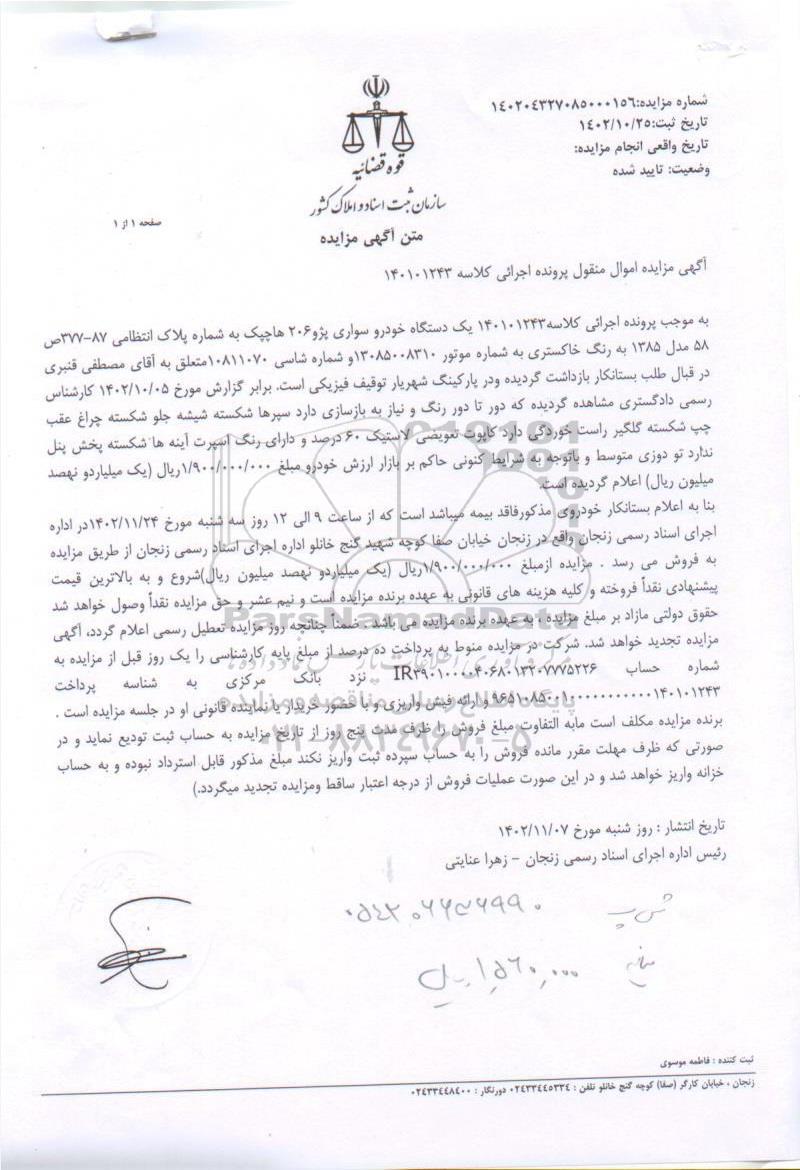 شماره مزایده:۱۴۰۲۰۴۳۲۷۰۸۵۰۰۰۱۵۶
تاریخ ثبت:۱۴۰۲/۱۰/۲۵
تاریخ واقعی انجام مزایده:
وضعیت: تایید شده
قوه قضائیه
سازمان ثبت اسناد و املاک کشور
صفحه ۱ از ۱
متن آگهی مزایده
آگهی مزایده اموال منقول پرونده اجرائی کلاسه ۱۴۰۱۰۱۲۴۳
به موجب پرونده اجرائی کلاسه۱۴۰۱۰۱۲۴۳ یک دستگاه خودرو سواری پژو۲۰۶ هاچپک به شماره پلاک انتظامی ۸۷–۳۷۷ص
۵۸ مدل ۱۳۸۵ به رنگ خاکستری به شماره موتور ۱۳۰۸۵۰۰۸۳۱۰و شماره شاسی ۱۰۸۱۱۰۷۰متعلق به آقای مصطفی قنبری
در قبال طلب بستانکار بازداشت گردیده ودر پارکینگ شهریار توقیف فیزیکی است. برابر گزارش مورخ ۱۴۰۲/۱۰/۰۵ کارشناس
رسمی دادگستری مشاهده گردیده که دور تا دور رنگ و نیاز به بازسازی دارد سپرها شکسته شیشه جلو شکسته چراغ عقب
چپ شکسته گلگیر راست خوردگی دارد کاپوت تعویضی لاستیک ۶۰ درصد و دارای رنگ اسپرت آینه ها شکسته پخش پنل
ندارد تو دوزی متوسط و باتوجه به شرایط کنونی حاکم بر بازار ارزش خودرو مبلغ ۱/۹۰۰/۰۰۰/۰۰۰ریال (یک میلیاردو نهصد
میلیون ریال) اعلام گردیده است.
بنا به اعلام بستانکار خودروی مذکورفاقد بیمه میباشد است که از ساعت ۹ الی ۱۲ روز سه شنبه مورخ ۱۴۰۲/۱۱/۲۴در اداره
اجرای اسناد رسمی زنجان واقع در زنجان خیابان صفا کوچه شهید گنج خانلو اداره اجرای اسناد رسمی زنجان از طریق مزایده
به فروش می رسد . مزایده ازمبلغ ۱/۹۰۰/۰۰۰/۰۰۰ریال (یک میلیاردو نهصد میلیون ریال)شروع و به بالاترین قیمت
پیشنهادی نقداً فروخته و کلیه هزینه های قانونی به عهده برنده مزایده است و نیم عشر و حق مزایده نقداً وصول خواهد شد
حقوق دولتی مازاد بر مبلغ مزایده ، به عهده برنده مزایده می باشد . ضمناً چنانچه روز مزایده تعطیل رسمی اعلام گردد، آگهی
مزایده تجدید خواهد شد. شرکت در مزایده منوط به پرداخت ده درصد از مبلغ پایه کارشناسی را یک روز قبل از مزایده به
شماره حساب IR۳۹۰۱۰۰۰۰۴۰۶۸۰۱۳۲۰۷۷۷۵۲۲۶ نزد بانک مرکزی به شناسه پرداخت
۹۶۵۱۰۸۵۰۰۱۰۰۰۰۰۰۰۰۰۰۰۰۱۴۰۱۰۱۲۴۳ و ارائه فیش واریزی و با حضور خریدار یا نماینده قانونی او در جلسه مزایده است .
برنده مزایده مکلف است مابه التفاوت مبلغ فروش را ظرف مدت پنج روز از تاریخ مزایده به حساب ثبت تودیع نماید و در
صورتی که ظرف مهلت مقرر مانده فروش را به حساب سپرده ثبت واریز نکند مبلغ مذکور قابل استرداد نبوده و به حساب
خزانه واریز خواهد شد و در این صورت عملیات فروش از درجه اعتبار ساقط ومزایده تجدید میگردد.)
ParsNamadData
۰۲۱-۸۸۳۴۹۶۷۰-۵
تاریخ انتشار : روز شنبه مورخ ۱۴۰۲/۱۱/۰۷
رئیس اداره اجرای اسناد رسمی زنجان – زهرا عنایتی
۱,۵۶۰,۰۰۰ ریال
ثبت کننده : فاطمه موسوی
زنجان ، خیابان کارگر (صفا) کوچه گنج خانلو تلفن : ۰۲۴۳۳۴۴۵۳۳۴ دورنگار : ۰۲۴۳۳۴۴۸۴۰۰